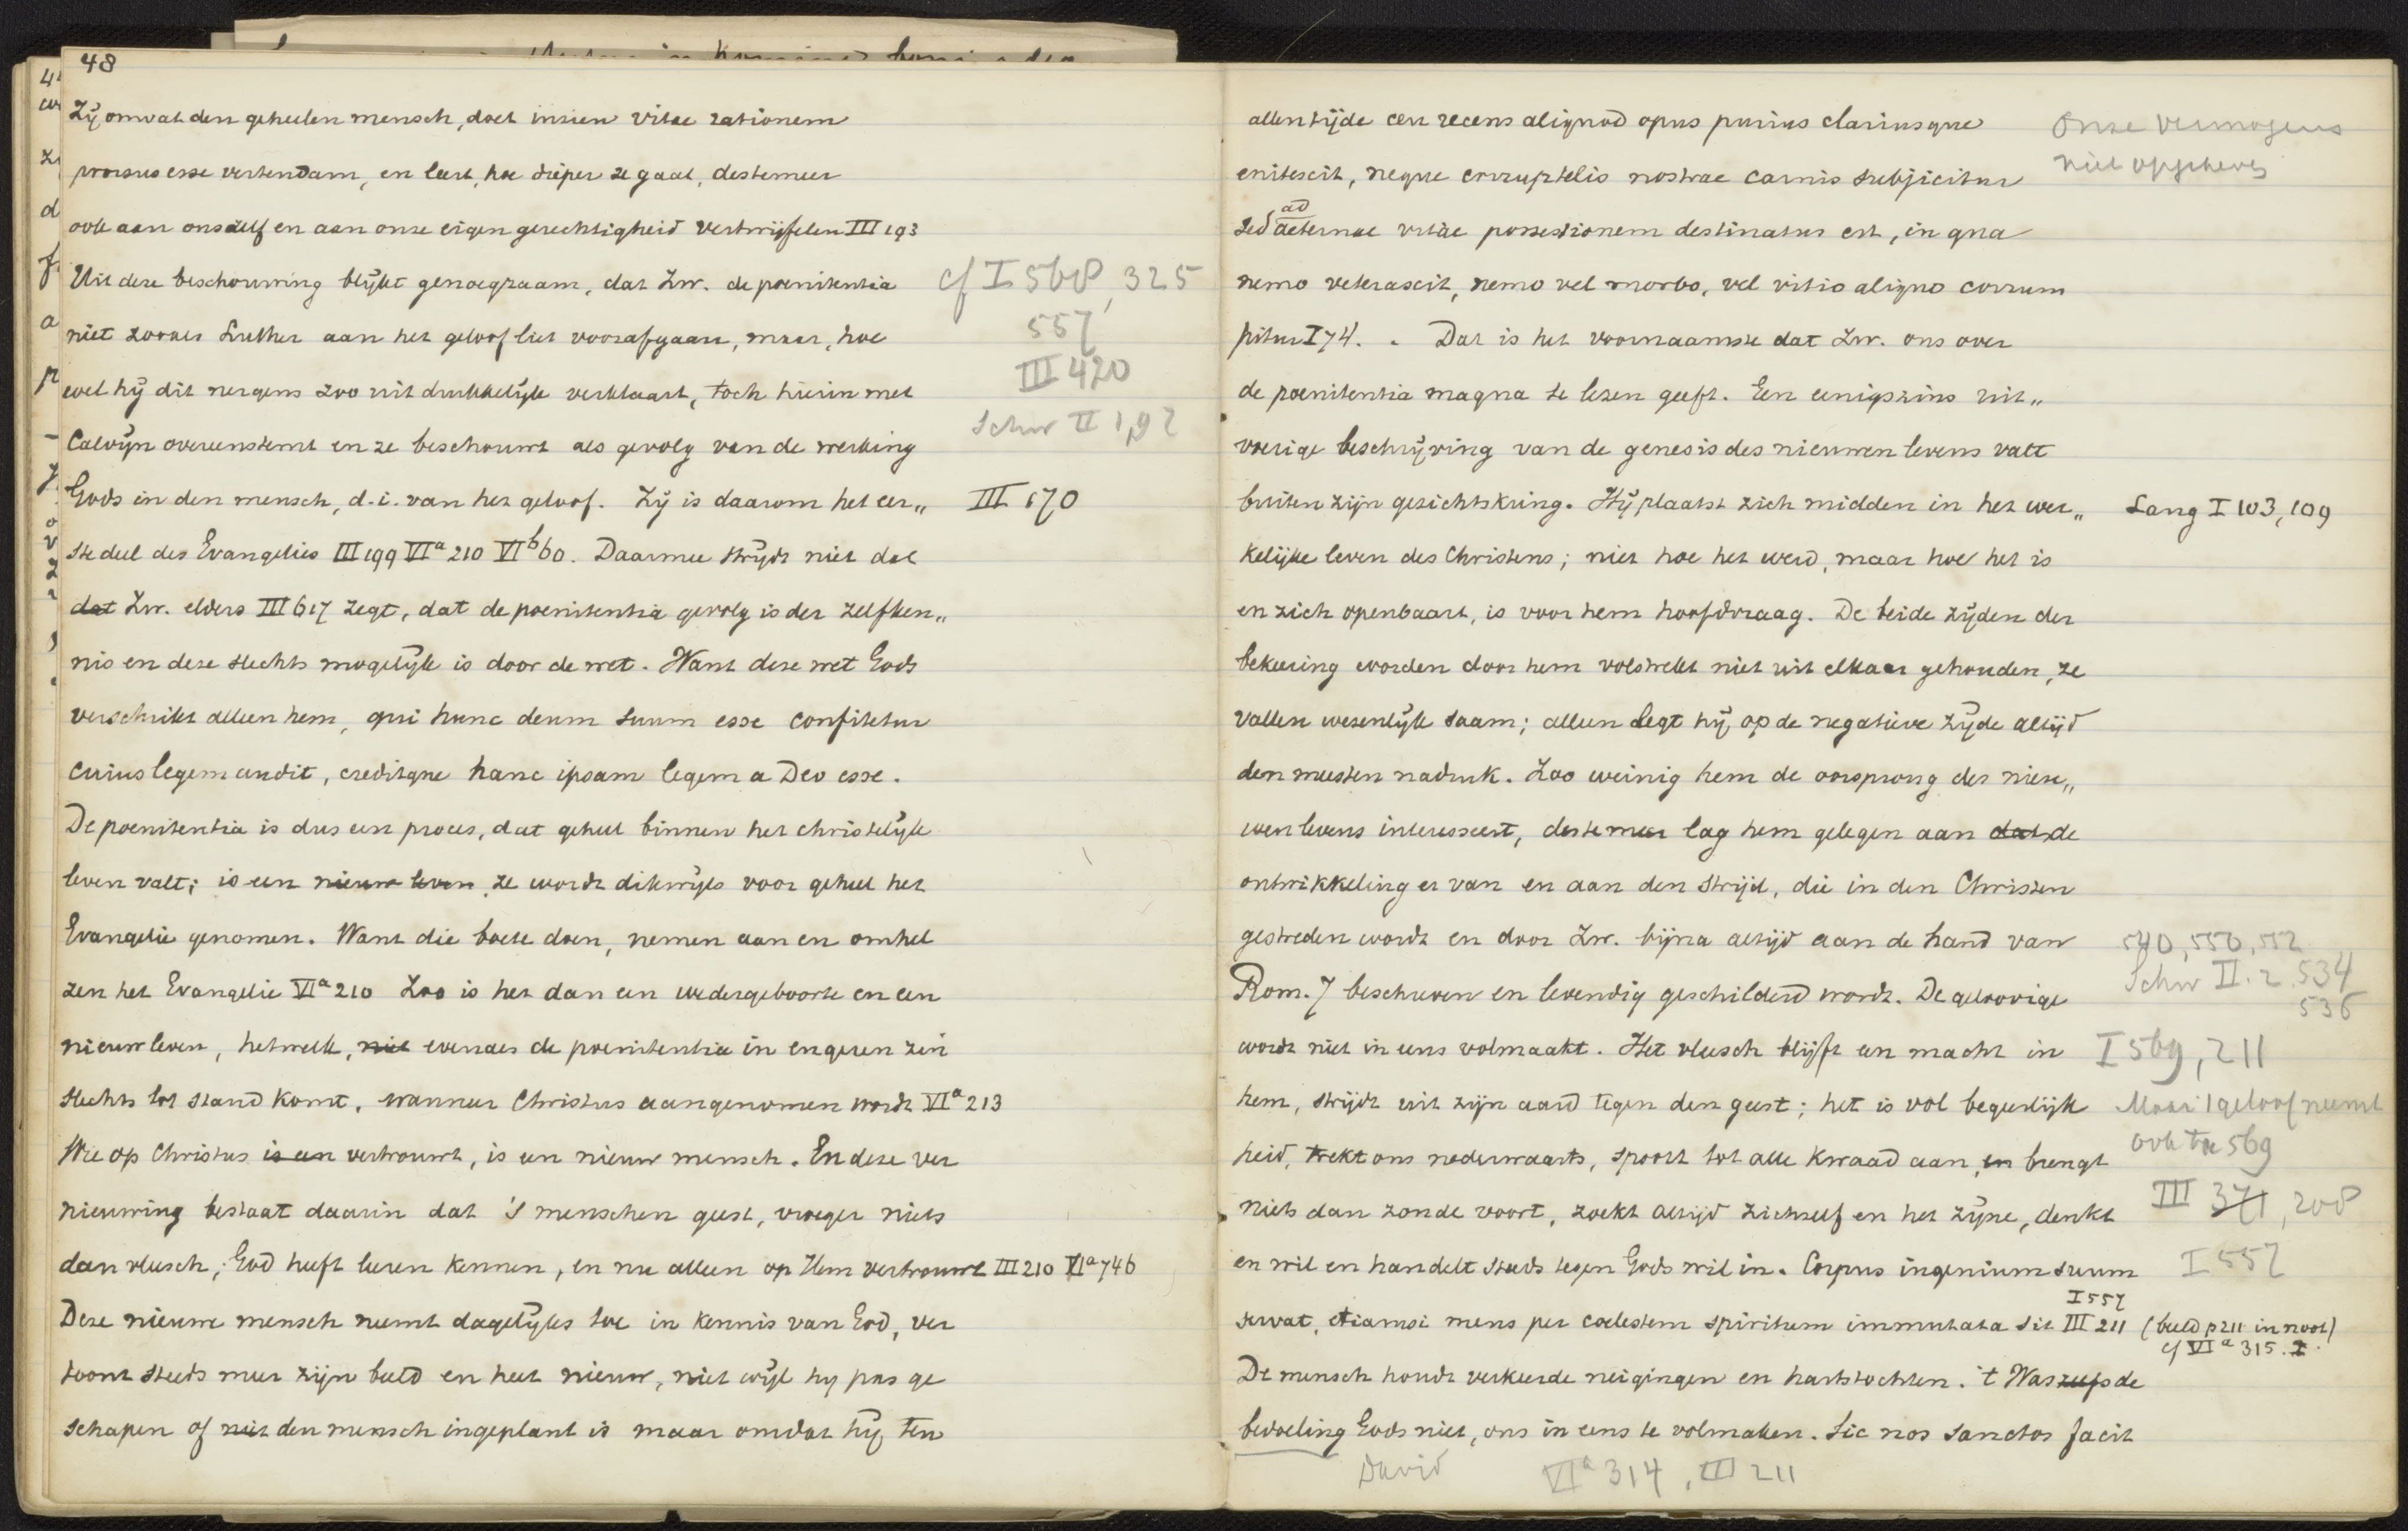 48
Zij omvat den geheelen mensch, doet inzien vitae rationem
prorsus esse vertendam, en leert, hoe dieper ze gaat, destemeer
ook aan onszelf en aan onze eigen gerechtigheid vertwijfelen III 193
Uit deze beschouwing blijkt genoegzaam, dat Zw. de poenitentia
cf I 568, 325
niet zooals Luther aan het geloof liet voorafgaan, maar, hoe
557
III 420
wel hij dit nergens zoo uitdrukkelijk verklaart, toch hierin met
Schw II 1,92
Calvijn overeenstemt en ze beschouwt als gevolg van de werking
Gods in den mensch, d.i. van het geloof. Zij is daarom het eer„
III 670
ste deel des Evangelies III 199 VIa 210 VIb 60. Daarmee strijdt niet dat
dat Zw. elders III 617 zegt, dat de poenitentia gevolg is der zelfken„
nis en deze slechts mogelijk is door de wet. Want deze wet Gods
verschrikt alleen hem, qui hunc deum suum esse confitetur
cuius legem audit, creditque hanc ipsam legem a Deo esse.
De poenitentia is dus een proces, dat geheel binnen het christelijk
leven valt; is een nieuw leven, ze wordt dikwijls voor geheel het
Evangelie genomen. Want die boete doen, nemen aan en omhel
zen het Evangelie VIa 210 Zoo is het dan een wedergeboorte en een
nieuw leven, hetwelk, niet evenals de poenitentia in engeren zin
slechts tot stand komt, wanneer Christus aangenomen wordt VIa 213
Wie op Christus is een vertrouwt, is een nieuw mensch. En deze ver
nieuwing bestaat daarin dat 's menschen geest, vroeger niets
dan vleesch, God heeft leeren kennen, en nu alleen op Hem vertrouwt III 210 VIa 746
Deze nieuwe mensch neemt dagelijks toe in kennis van God, ver
toont steeds meer zijn beeld en heet nieuw, niet wijl hij pas ge
schapen of niet den mensch ingeplant is maar omdat hij ten
allentijde ceu recens aliquod opus purius clariusque
Onze vermogens
niet opgeheven
enitescit, neque corruptelis nostrae carnis subjicitur
sed ad aeternae vitae possessionem destinatus est, in qua
nemo veterascit, nemo vel morbo, vel vitio aliquo corrum
pitur I 74. . Dat is het voornaamste dat Zw. ons over
de poenitentia magna te lezen geeft. Een eenigszins uit„
voerige beschrijving van de genesis des nieuwen levens valt
buiten zijn gezichtskring. Hij plaatst zich midden in het wer„
Lang I 103, 109
kelijke leven des Christens; niet hoe het werd, maar hoe het is
en zich openbaart, is voor hem hoofdvraag. De beide zijden der
bekeering worden door hem volstrekt niet uit elkaar gehouden, ze
vallen wezenlijk saam; alleen legt hij op de negatieve zijde altijd
den meesten nadruk. Zoo weinig hem de oorsprong des nieu„
wen levens interesseert, deste meer lag hem gelegen aan dat de
ontwikkeling er van en aan den strijd, die in den Christen
gestreden wordt en door Zw. bijna altijd aan de hand van
540, 550, 552
Schw II. 2. 534
536
Rom. 7 beschreven en levendig geschilderd wordt. De geloovige
wordt niet in eens volmaakt. Het vleesch blijft een macht in
I 569, 211
hem, strijdt uit zijn aard tegen den geest; het is vol begeerlijk
Maar 't geloof neemt
ook toe 569
heid, trekt ons nederwaarts, spoort tot alle kwaad aan, en brengt
niets dan zonde voort, zoekt altijd zichzelf en het zijne, denkt
III 371, 208
en wil en handelt steeds tegen Gods wil in. Corpus ingenium suum
I 557
servat, etiamsi mens per coelestem spiritum immutata sit III 211 (beeld p 211 in noot)
I 557
cf VIa 315. I.
De mensch houdt verkeerde neigingen en hartstochten. 't Was zelfs de
bedoeling Gods niet, ons in eens te volmaken. Sic nos sanctos facit
David VIa 314, III 211